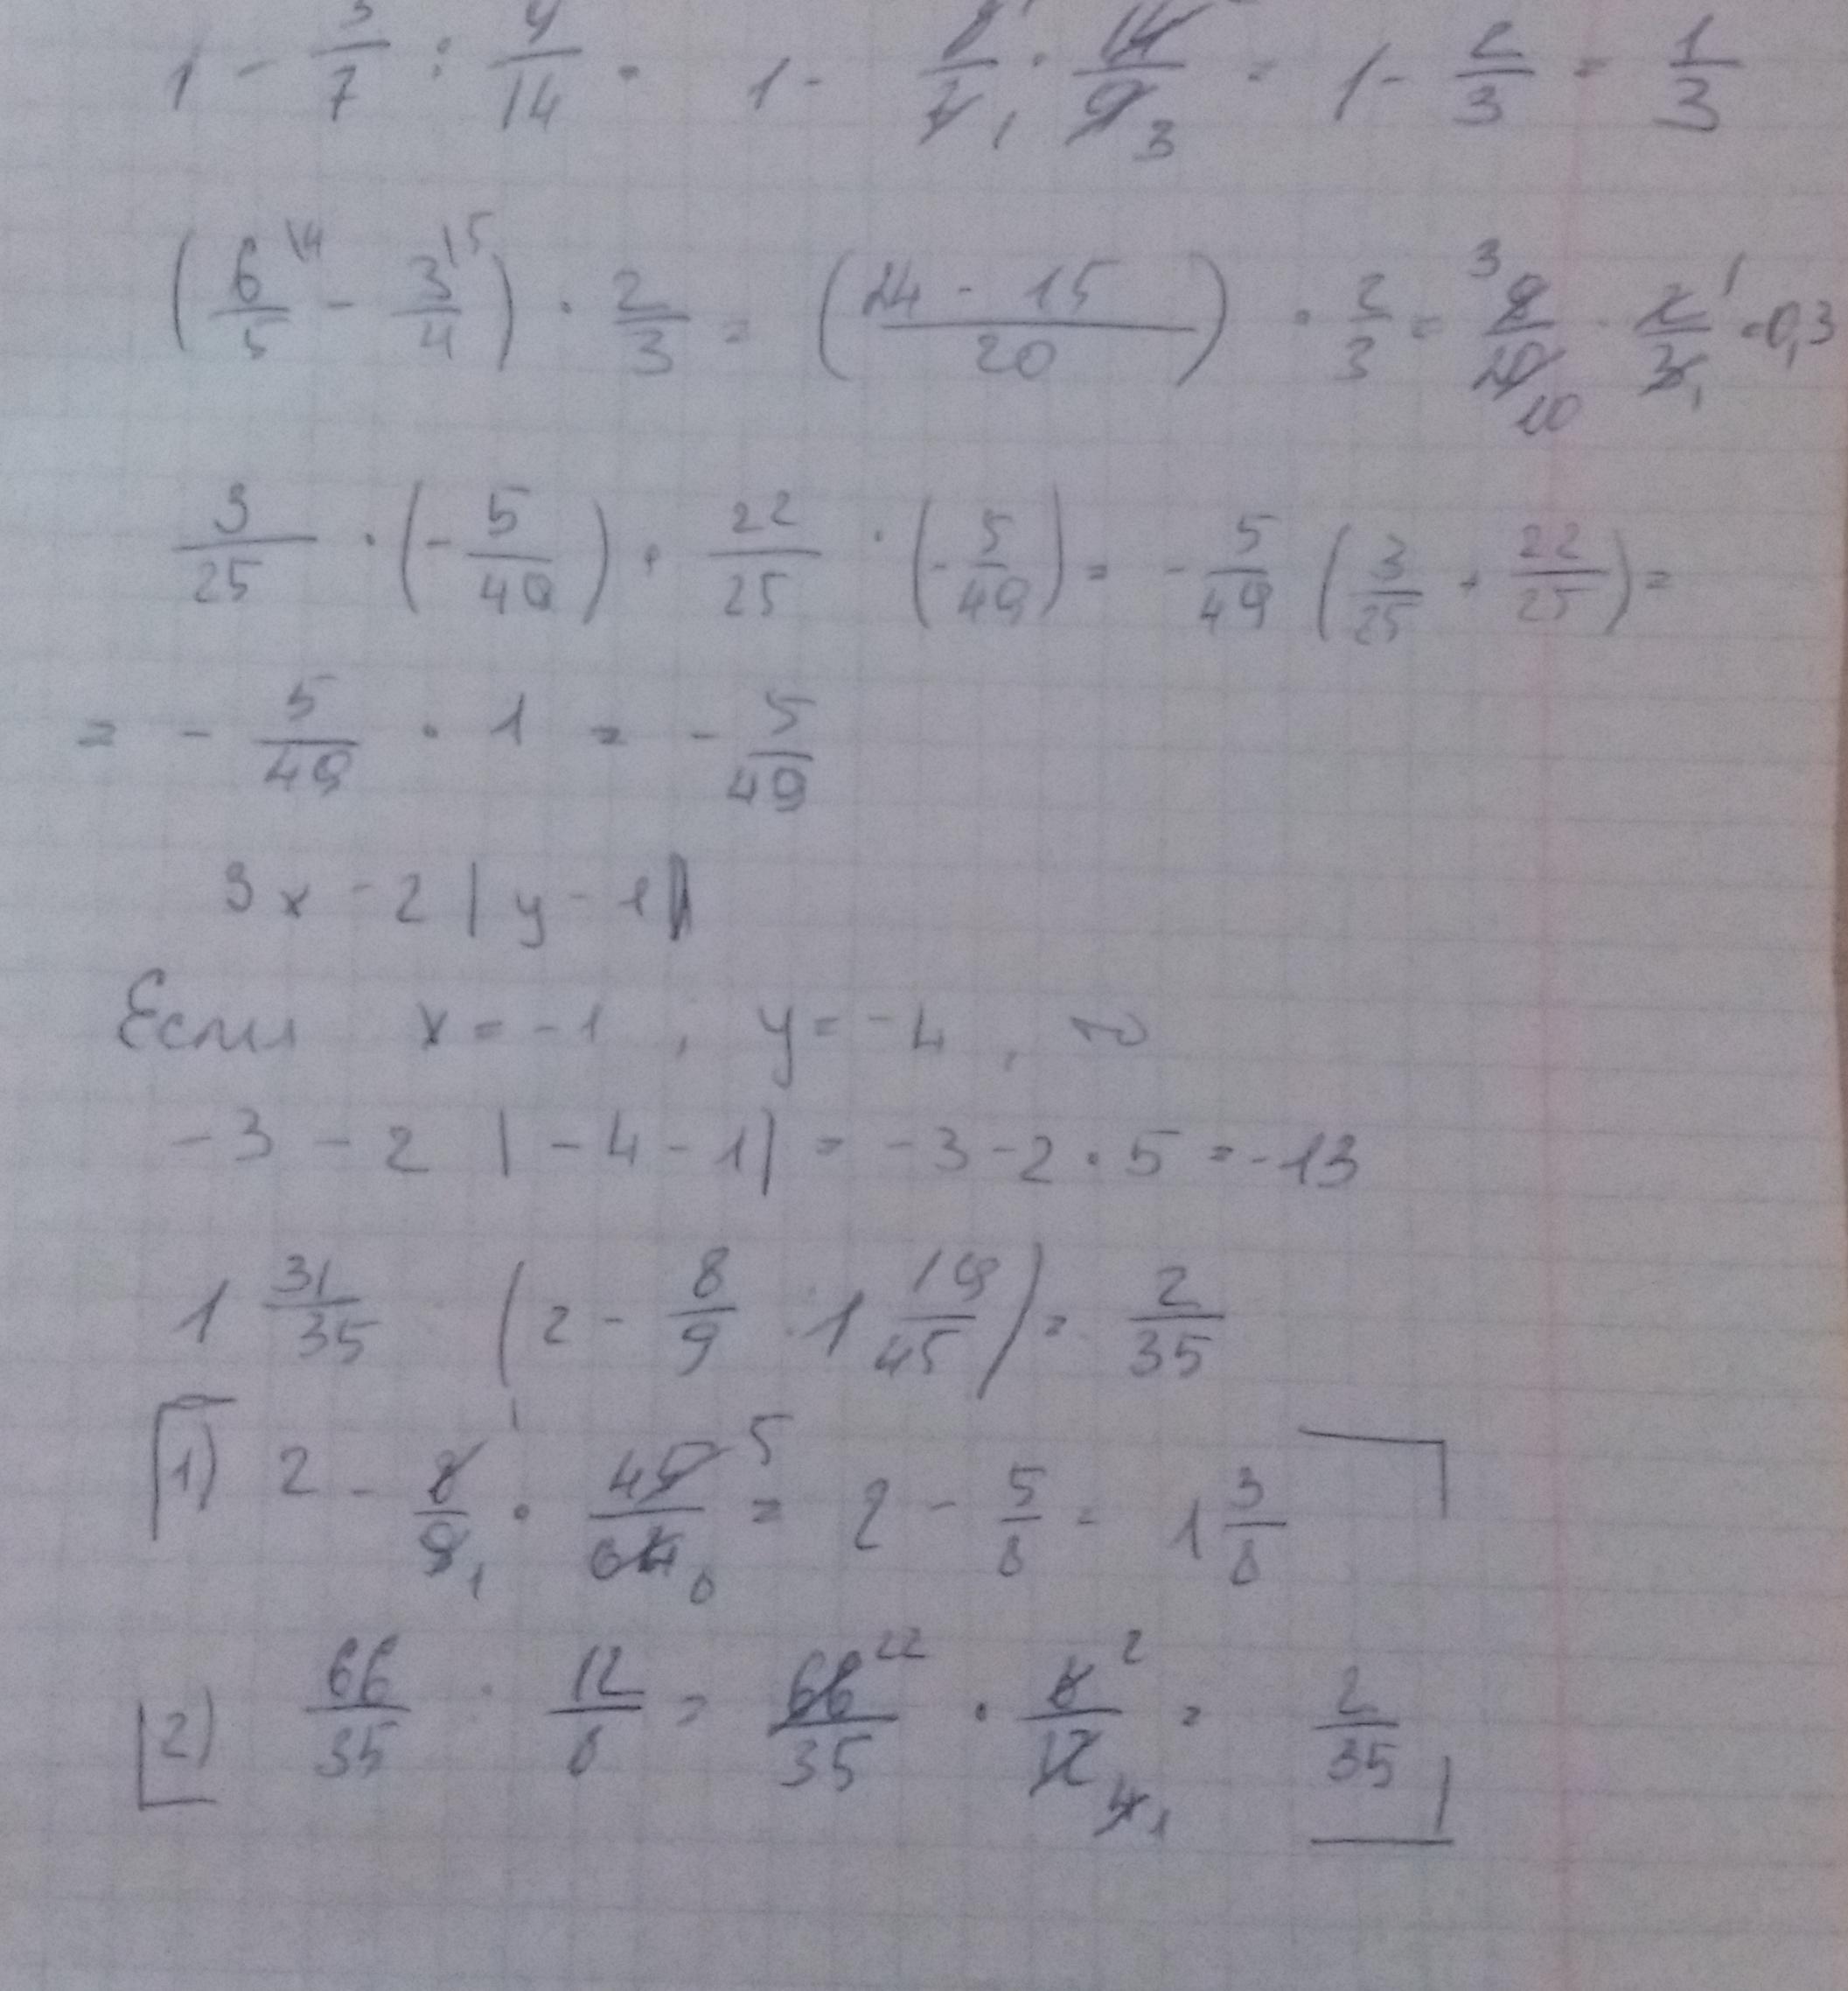 1 - 3/7 : 9/14 = 1 - 3/7 · 14/9 = 1 - 2/3 = 1/3
(6/5 \4 - 3/4 \5) · 2/3 = (24 - 15 / 20) · 2/3 = 9/20 · 2/3 = 0,3
3/25 · (-5/49) + 22/25 · (-5/49) = -5/49 (3/25 + 22/25) =
= -5/49 · 1 = -5/49
3x - 2|y - 1|
Если x = -1, y = -4, то
-3 - 2 |-4 - 1| = -3 - 2 · 5 = -13
1 31/35 : (2 - 8/9 : 1 19/45) = 2/35
1) 2 - 8/9 · 45/64 = 2 - 5/8 = 1 3/8
2) 66/35 : 12/8 = 66/35 · 8/12 = 2/35